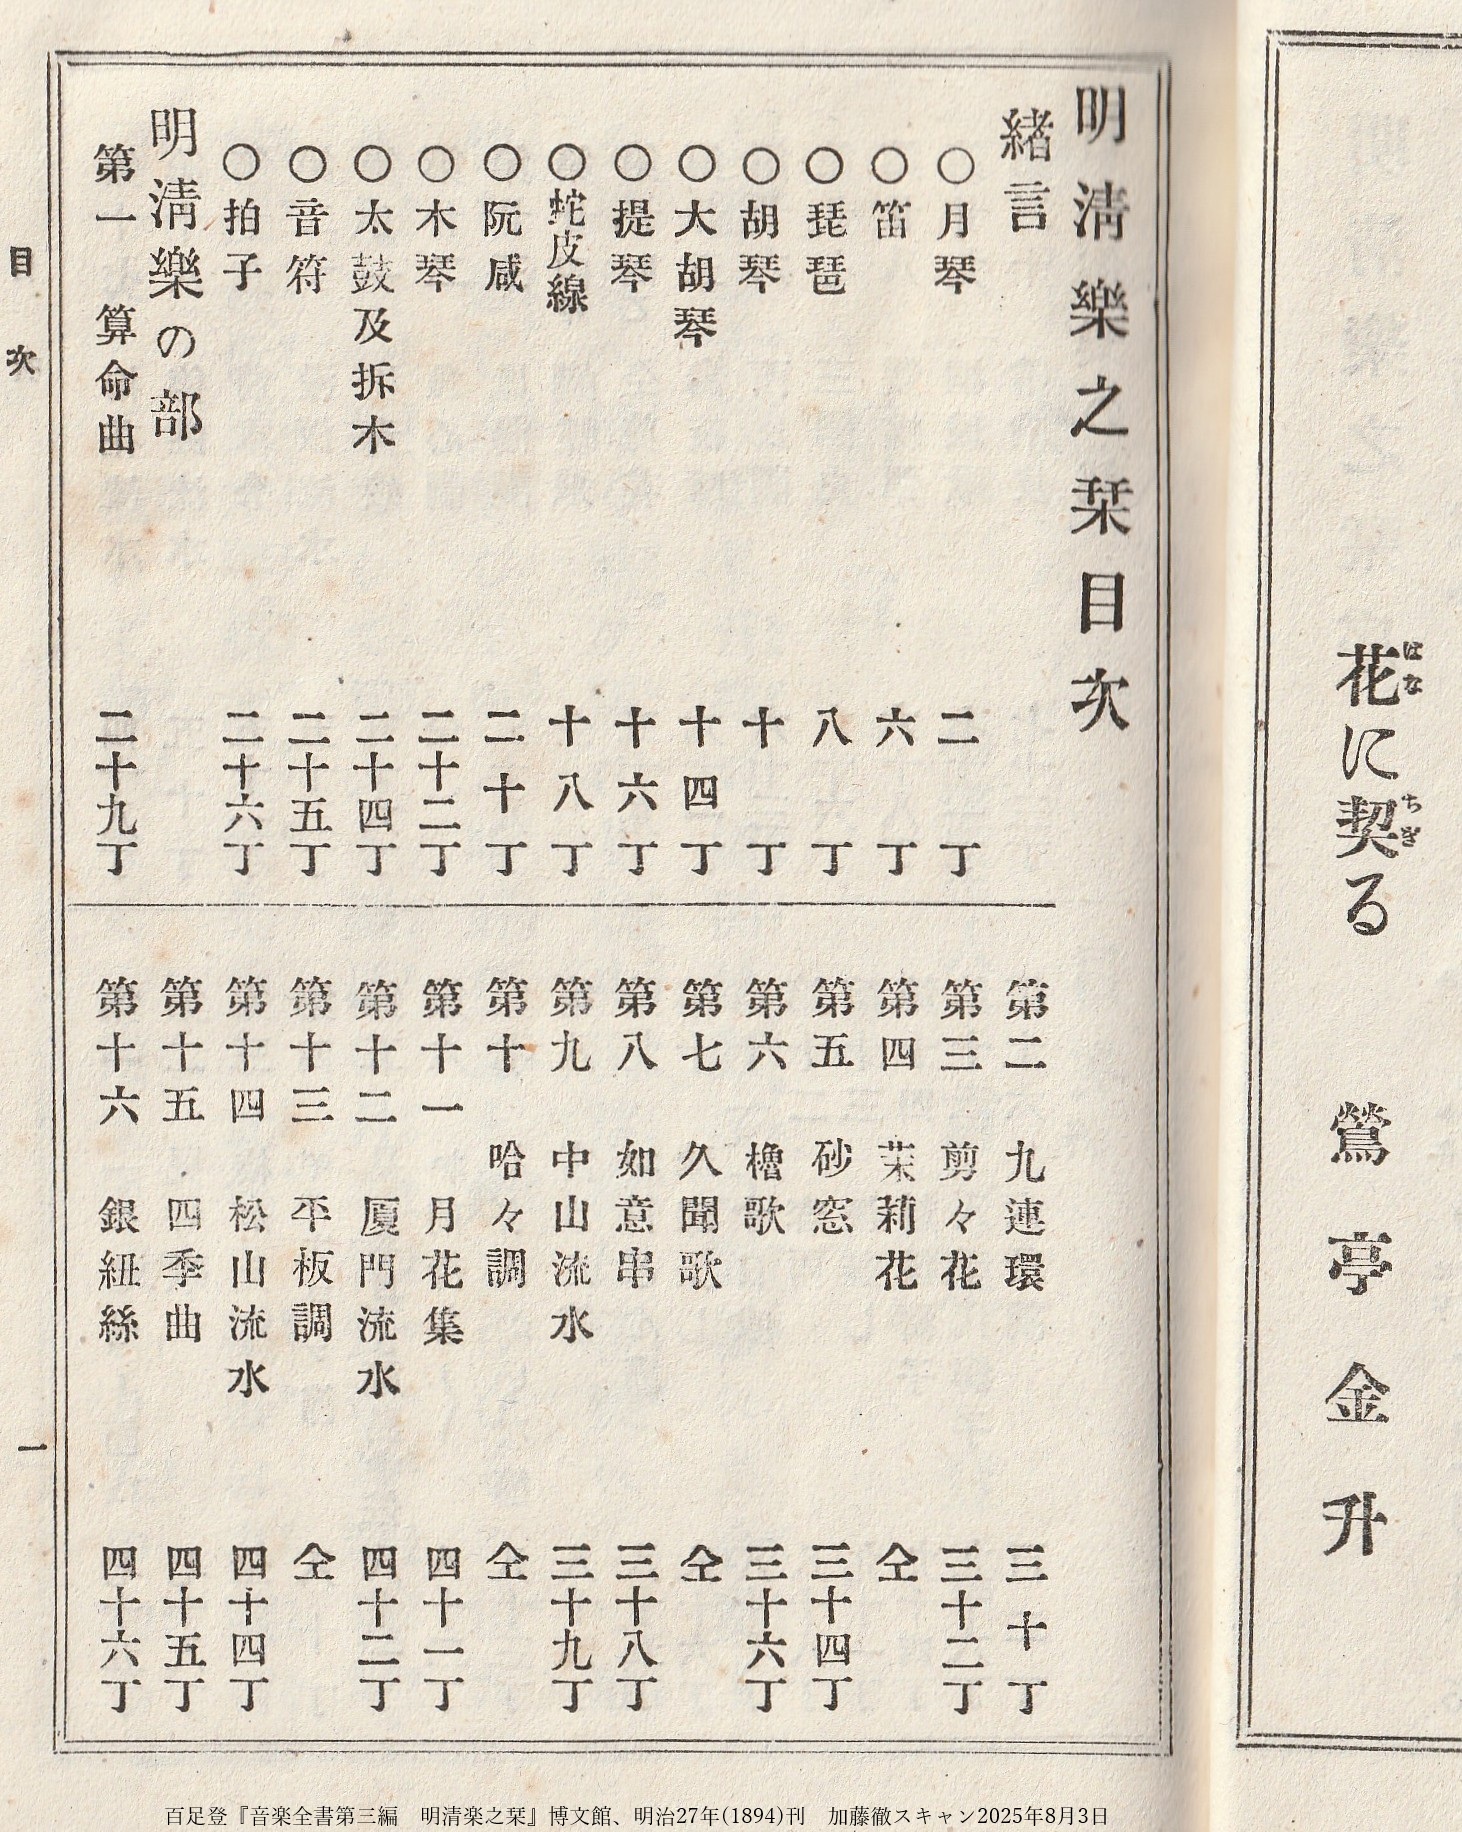 花に契る　鶯亭金升
はな
ちぎ
明淸樂之栞目次
緖言
〇月琴　二丁
〇笛　六丁
〇琵琶　八丁
〇胡琴　十丁
〇大胡琴　十四丁
〇提琴　十六丁
〇蛇皮線　十八丁
〇阮咸　二十丁
〇木琴　二十二丁
〇太鼓及拆木　二十四丁
〇音符　二十五丁
〇拍子　二十六丁
明淸樂の部
第一　算命曲　二十九丁
第二　九連環　三十丁
第三　剪々花　三十二丁
第四　茉莉花　仝
第五　砂窓　三十四丁
第六　擓歌　三十六丁
第七　久聞歌　仝
第八　如意串　三十八丁
第九　中山流水　三十九丁
第十　哈々調　仝
第十一　月花集　四十一丁
第十二　厦門流水　四十二丁
第十三　平板調　仝
第十四　松山流水　四十四丁
第十五　四季曲　四十五丁
第十六　銀紐絲　四十六丁
目次　一
百足登『音楽全書第三編　明清楽之栞』博文館、明治27年(1894)刊　加藤徹スキャン2025年8月3日